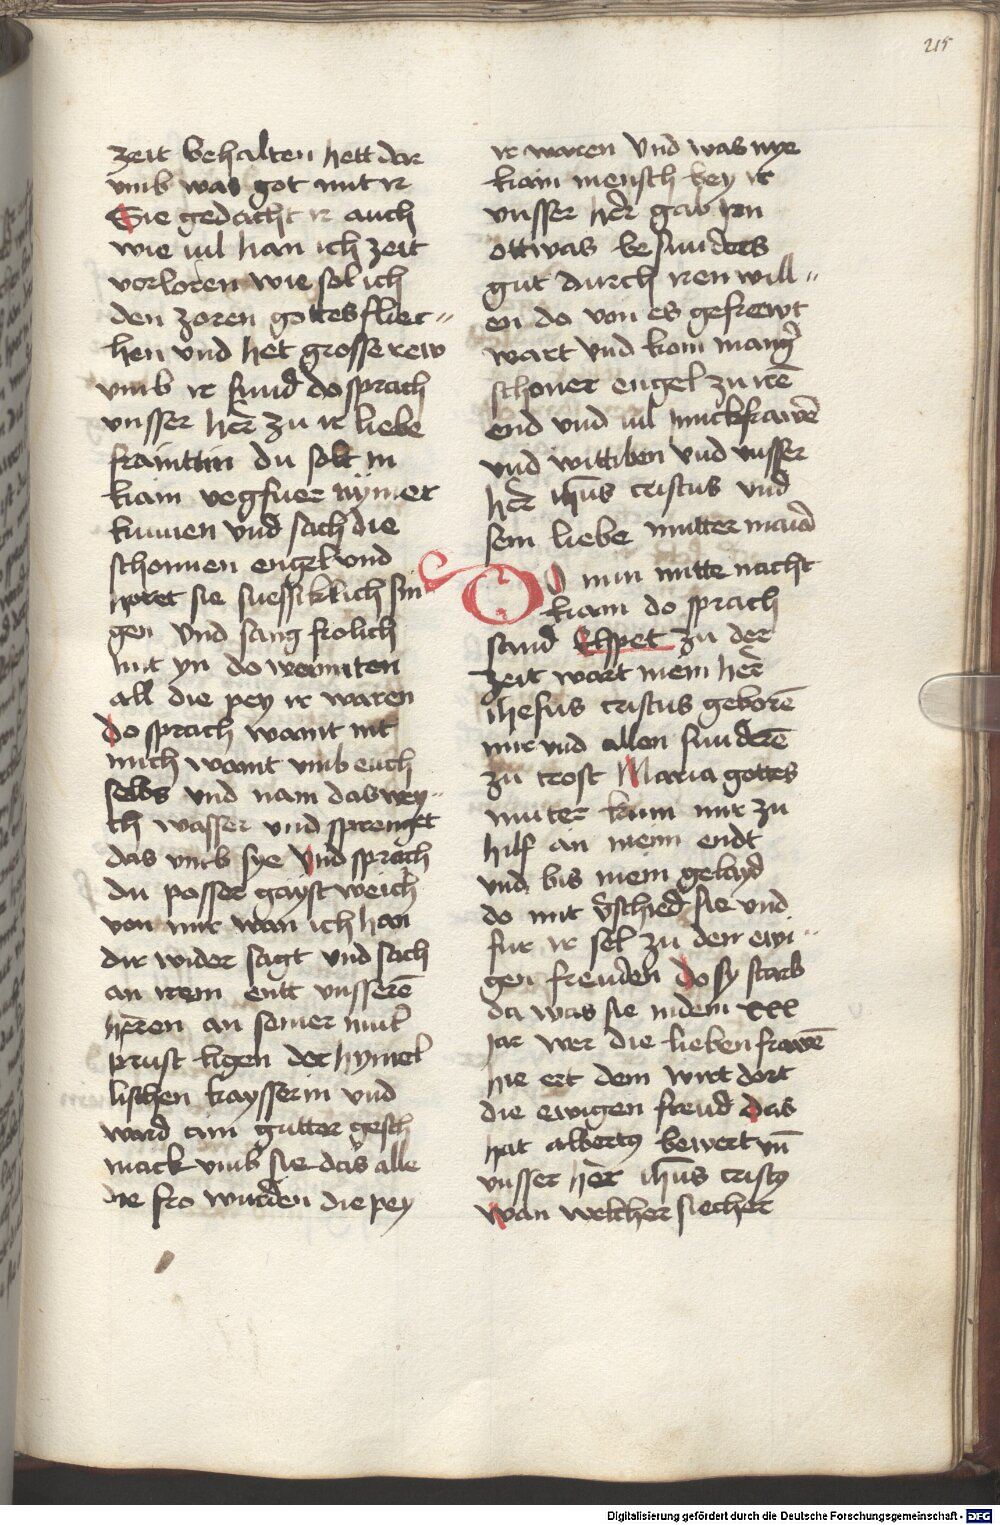 215
zeit behalten hett dar
umb was got mit ir
Sie gedacht ir auch
wie vil han ich zeit
verloren wie sol ich
den zoren gottes flier〃
hen vnd het grosse rew
vmb ir sund do sprach
vnsser her zu ir liebe
du solt in
kain vegfuer nymer
kumen vnd sach die
schonnen engel vnd
horet sie suessiklich sin
gen vnd sang frolich
mit yn do wainten
all die pey ir waren
do sprach waint nit
mich waint vmb euch
selbs vnd nam das wey〃
ch wasser vnd sprenget
das vmb sye vnd sprach
du posser gayst weich
von mir wan ich han
dir wider sagt vnd sach
an irem entt vnsserē
herren an seiner mut̄
prust ligen der hymel
lischen kaysserin vnd
ward ain gutter gesch
mack vmb sie das alle
die fro wurden die pey
ir waren vnd was nye
kain mensch bey ir
vnsser her gab im
ettwas besunders
gut durch iren will〃
en do von es gefrewt
wart vnd kom mang̃
schoner engel zu irē
end vnd vil junckfrawē
vnd wittiben vnd vnsser
her ih̄us cristus vnd
sein liebe mutter maria
DO nun mitte nacht
kam do sprach
sand Elspet zu der
zeit wart mein her
ihesus cristus geborē
mir vnd allen sunderē
zu trost Maria gottes
muter kum mir zu
hilf an meim endt
vnd bis mein gelayd
do mit v̄schied sie vnd
fur ir sel zu den ewi〃
gen freuden do sy starb
da was sie in dem xxx
jar wer die lieben frawē
hie ert dem wirt dort
die ewigen freud das
hat albertus bewert vn̄
vnsser her ih̄us cristꝰ
wan welcher siecher
Digitalisierung gefördert durch die Deutsche Forschungsgemeinschaft - DFG